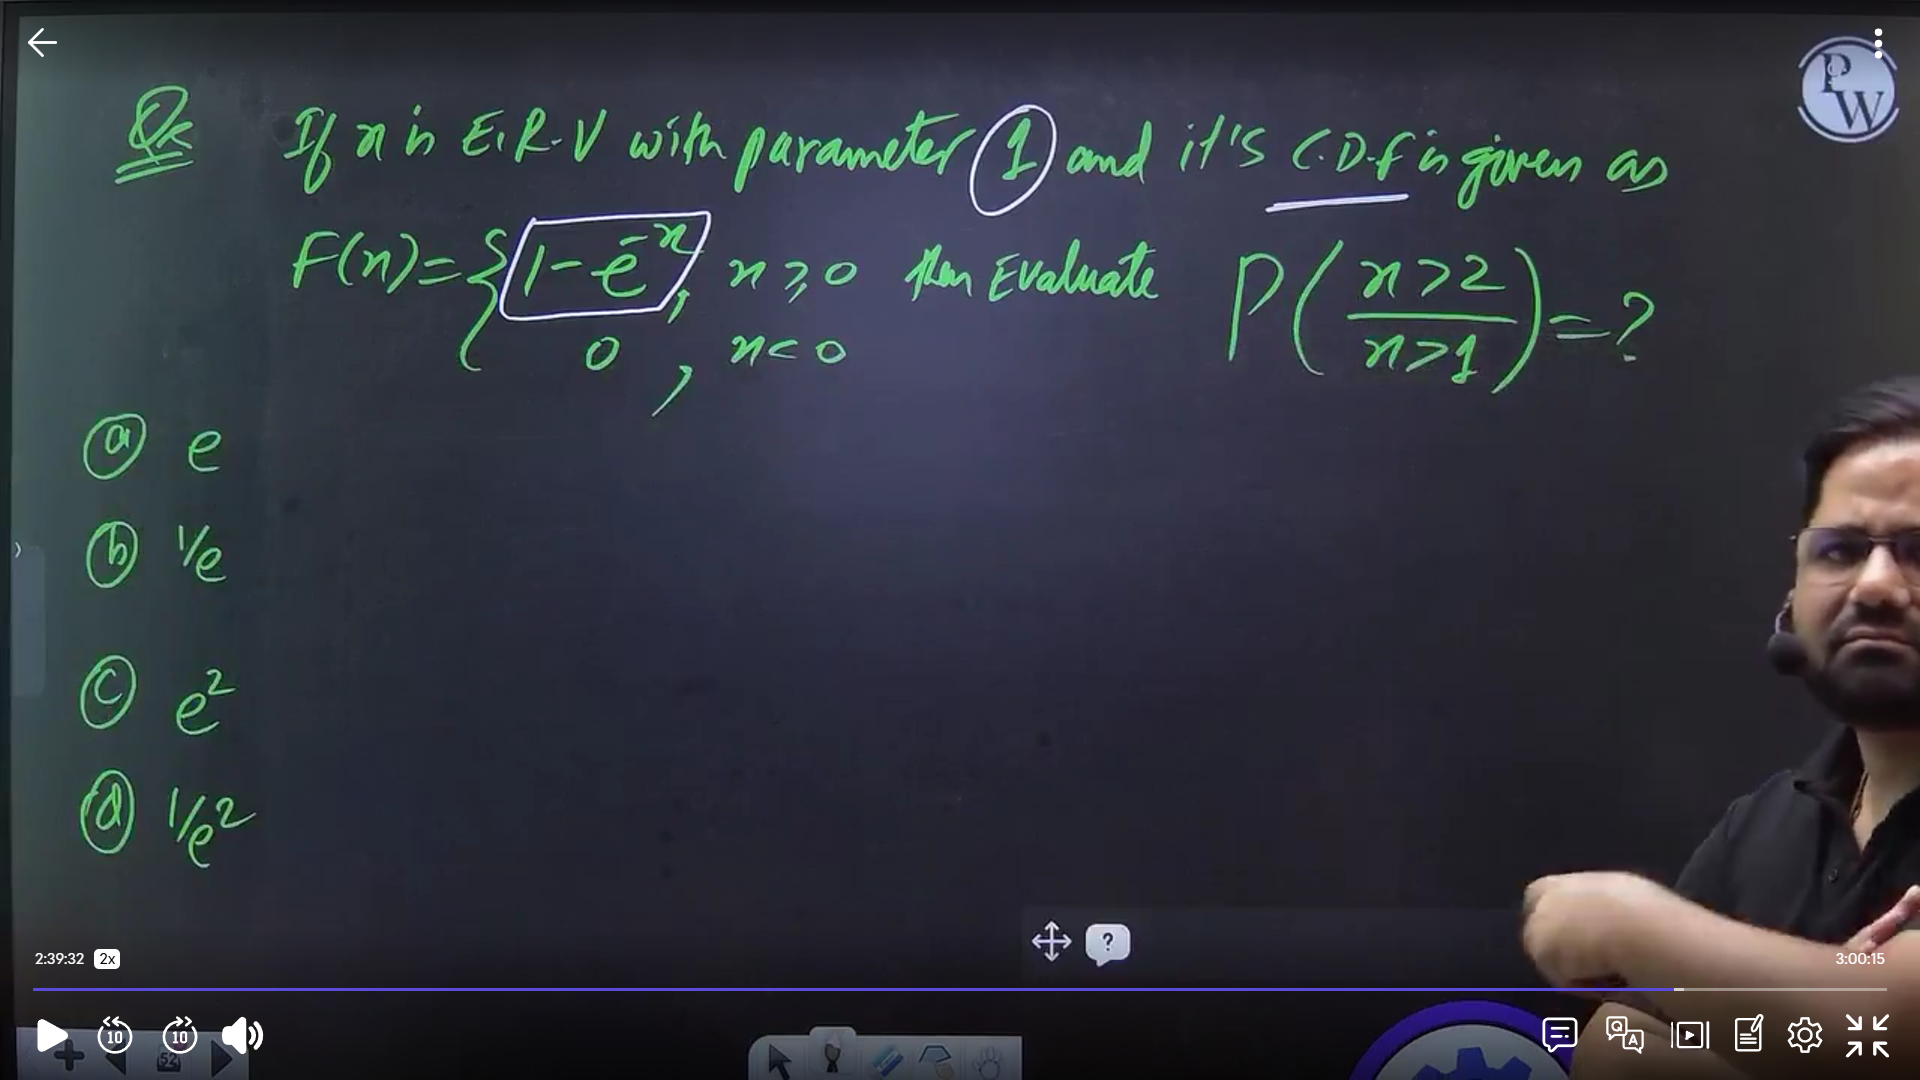 Q≤ If x is E.R.V with parameter 1 and it's C.D.f is given as
F(x)= { 1-e^-x , x ≥ 0 then Evaluate P(x>2 / x>1) = ?
0 , x < 0
(a) e
(b) 1/e
(c) e²
(d) 1/e²
PW
2:39:32 2x
3:00:15
10 10
52
?
Q A